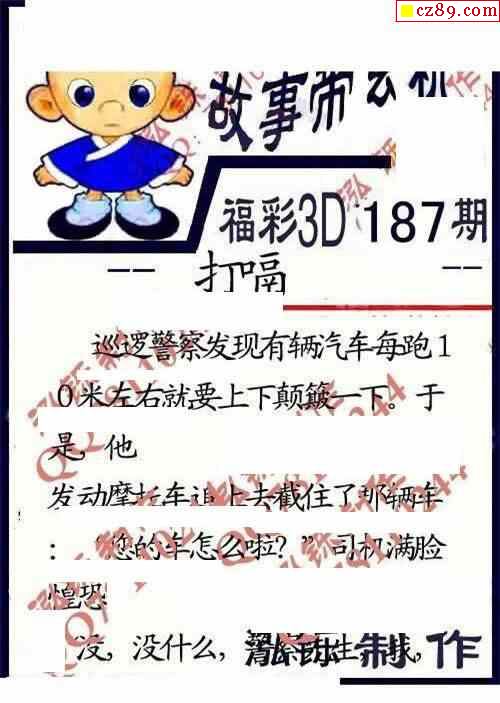 cz89.com
故事带玄机
福彩3D 187期
-- 打嗝 --
巡逻警察发现有辆汽车每跑1
0米左右就要上下颠簸一下。于
是,他
发动摩托车追上去截住了那辆车
:“您的车怎么啦?”司机满脸
惶恐
没,没什么,警察先生,我,
制作